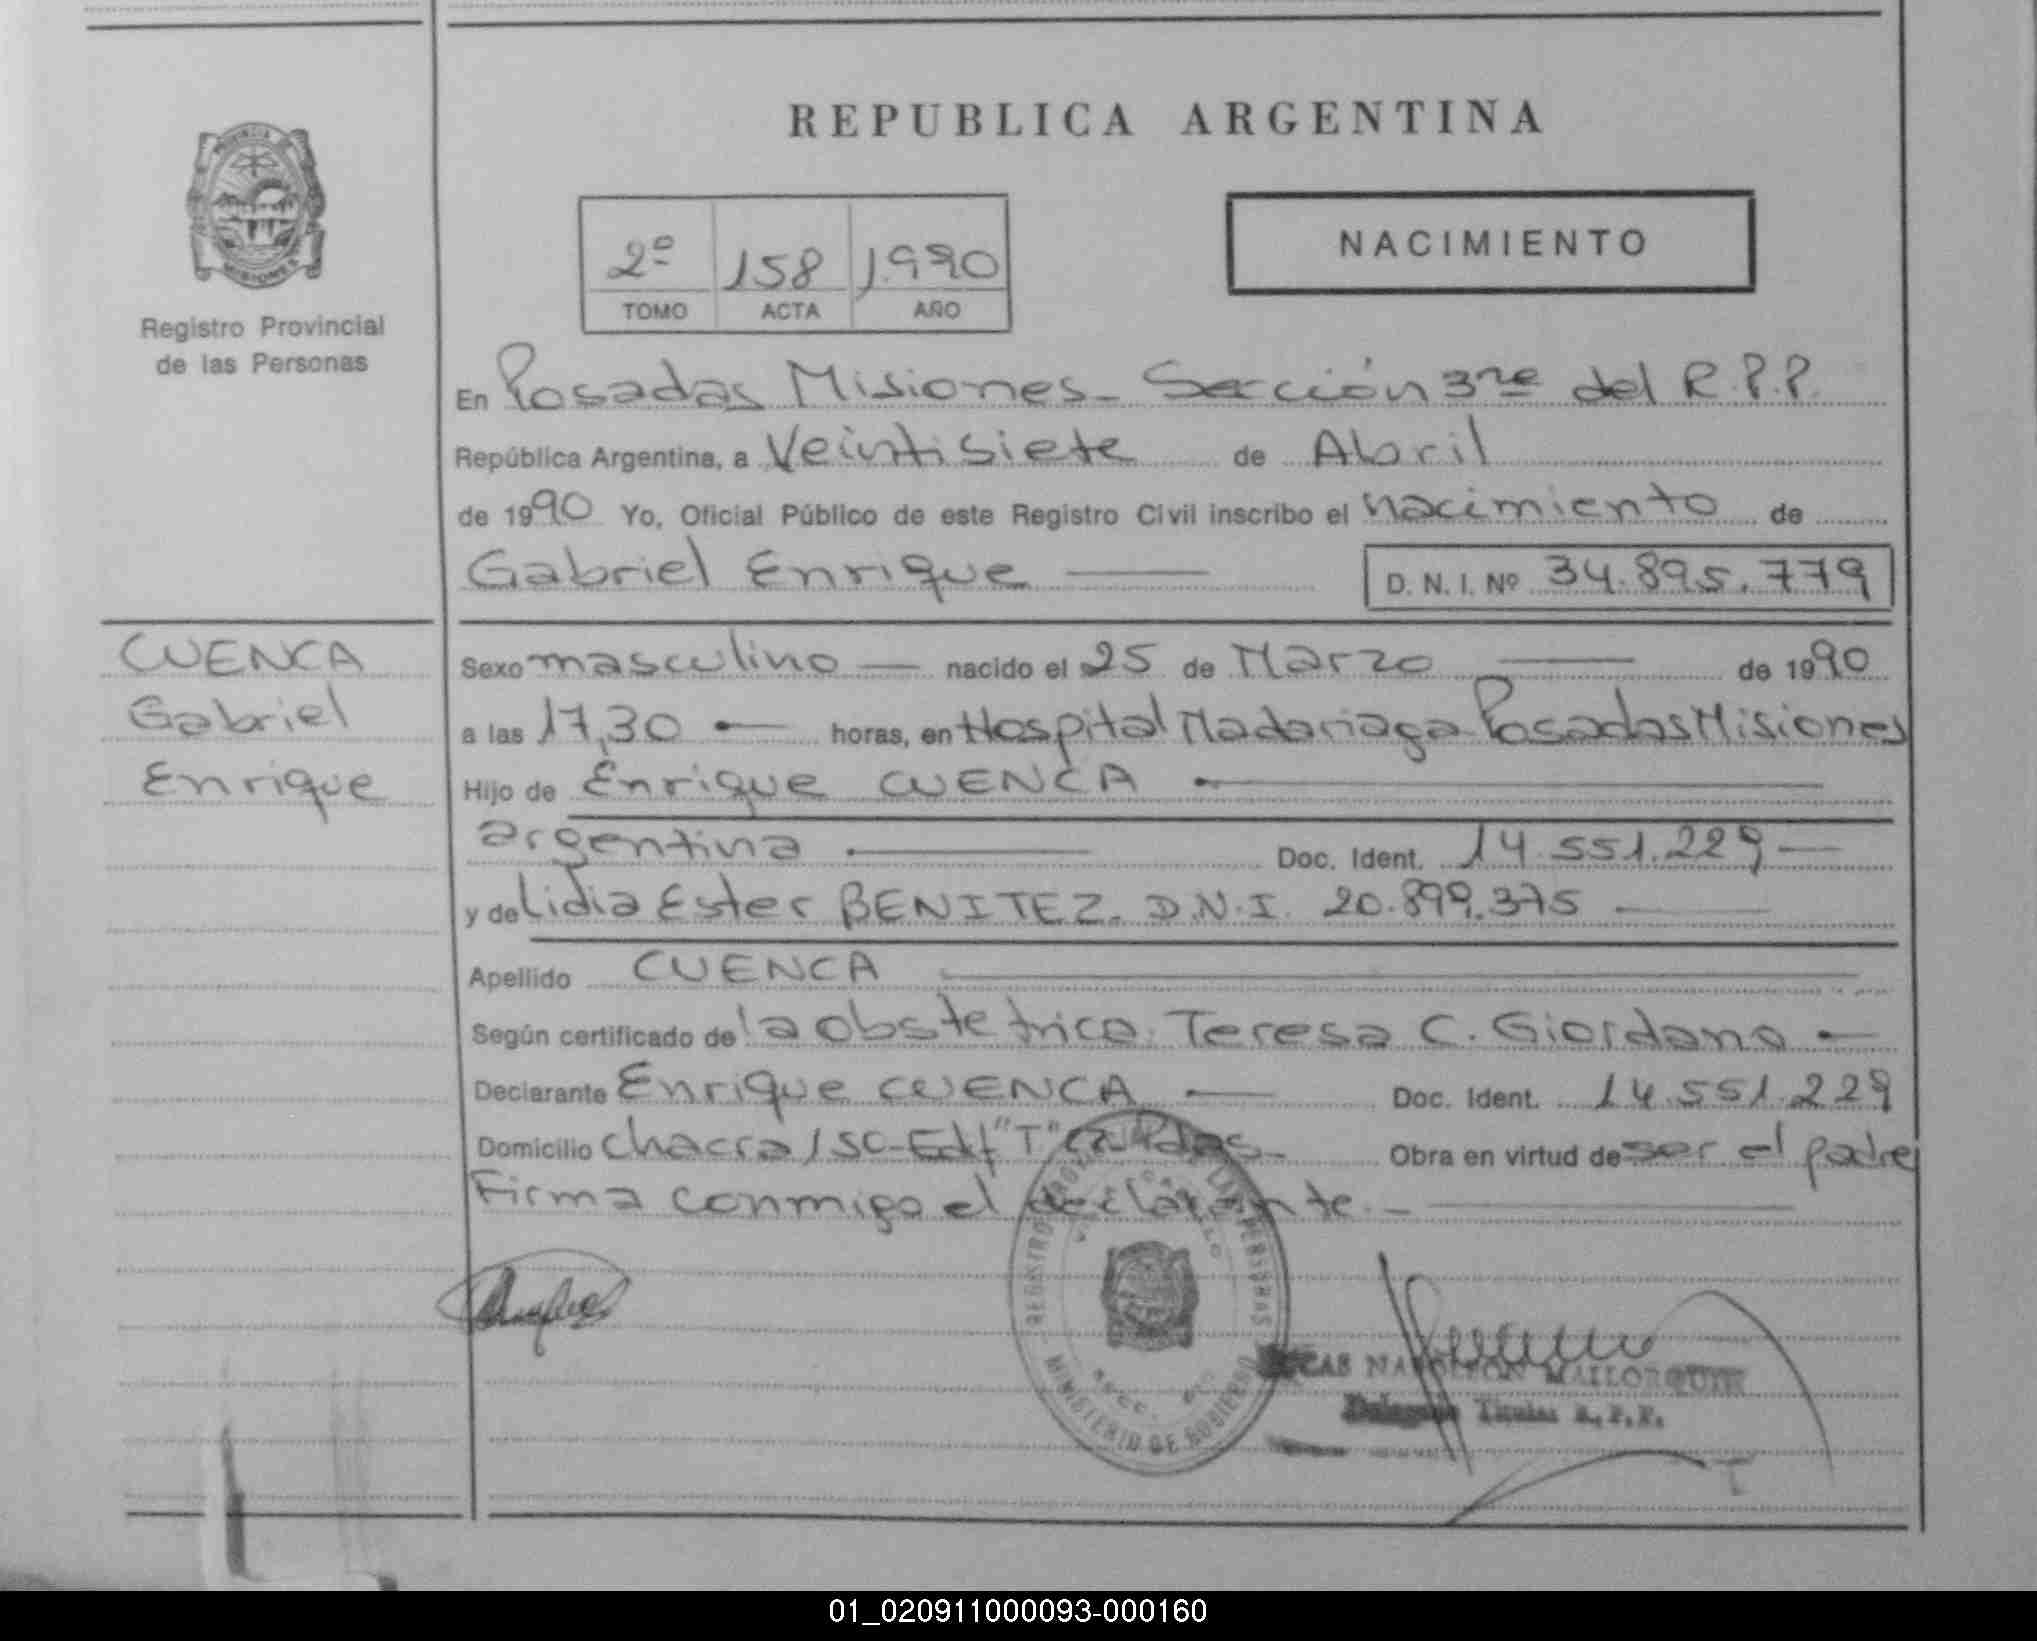 REPUBLICA ARGENTINA
NACIMIENTO
2º 158 1.990
TOMO ACTA AÑO
Registro Provincial
de las Personas
En Posadas Misiones - Sección 3ra del R.P.P.
República Argentina, a Veintisiete de Abril
de 1990 Yo, Oficial Público de este Registro Civil inscribo el nacimiento de
Gabriel Enrique D. N. I. Nº 34.895.779
CUENCA
Gabriel
Enrique
Sexo masculino nacido el 25 de Marzo de 1990
a las 17,30 horas, en Hospital Madariaga Posadas Misiones
Hijo de Enrique CUENCA
argentina Doc. Ident. 14.551.229
y de Lidia Ester BENITEZ. D.N.I. 20.899.375
Apellido CUENCA
Según certificado de la obstetrica. Teresa C. Giordano
Declarante Enrique CUENCA Doc. Ident. 14.551.229
Domicilio chacra 150-Edf "T" Obra en virtud de ser el padre
Firma conmigo el declarante.
REGISTRO LAS PERSONAS
MINISTERIO DE GOBIERNO
NAPOLEON MAILORQUIN
Titular R.P.P.
01_020911000093-000160